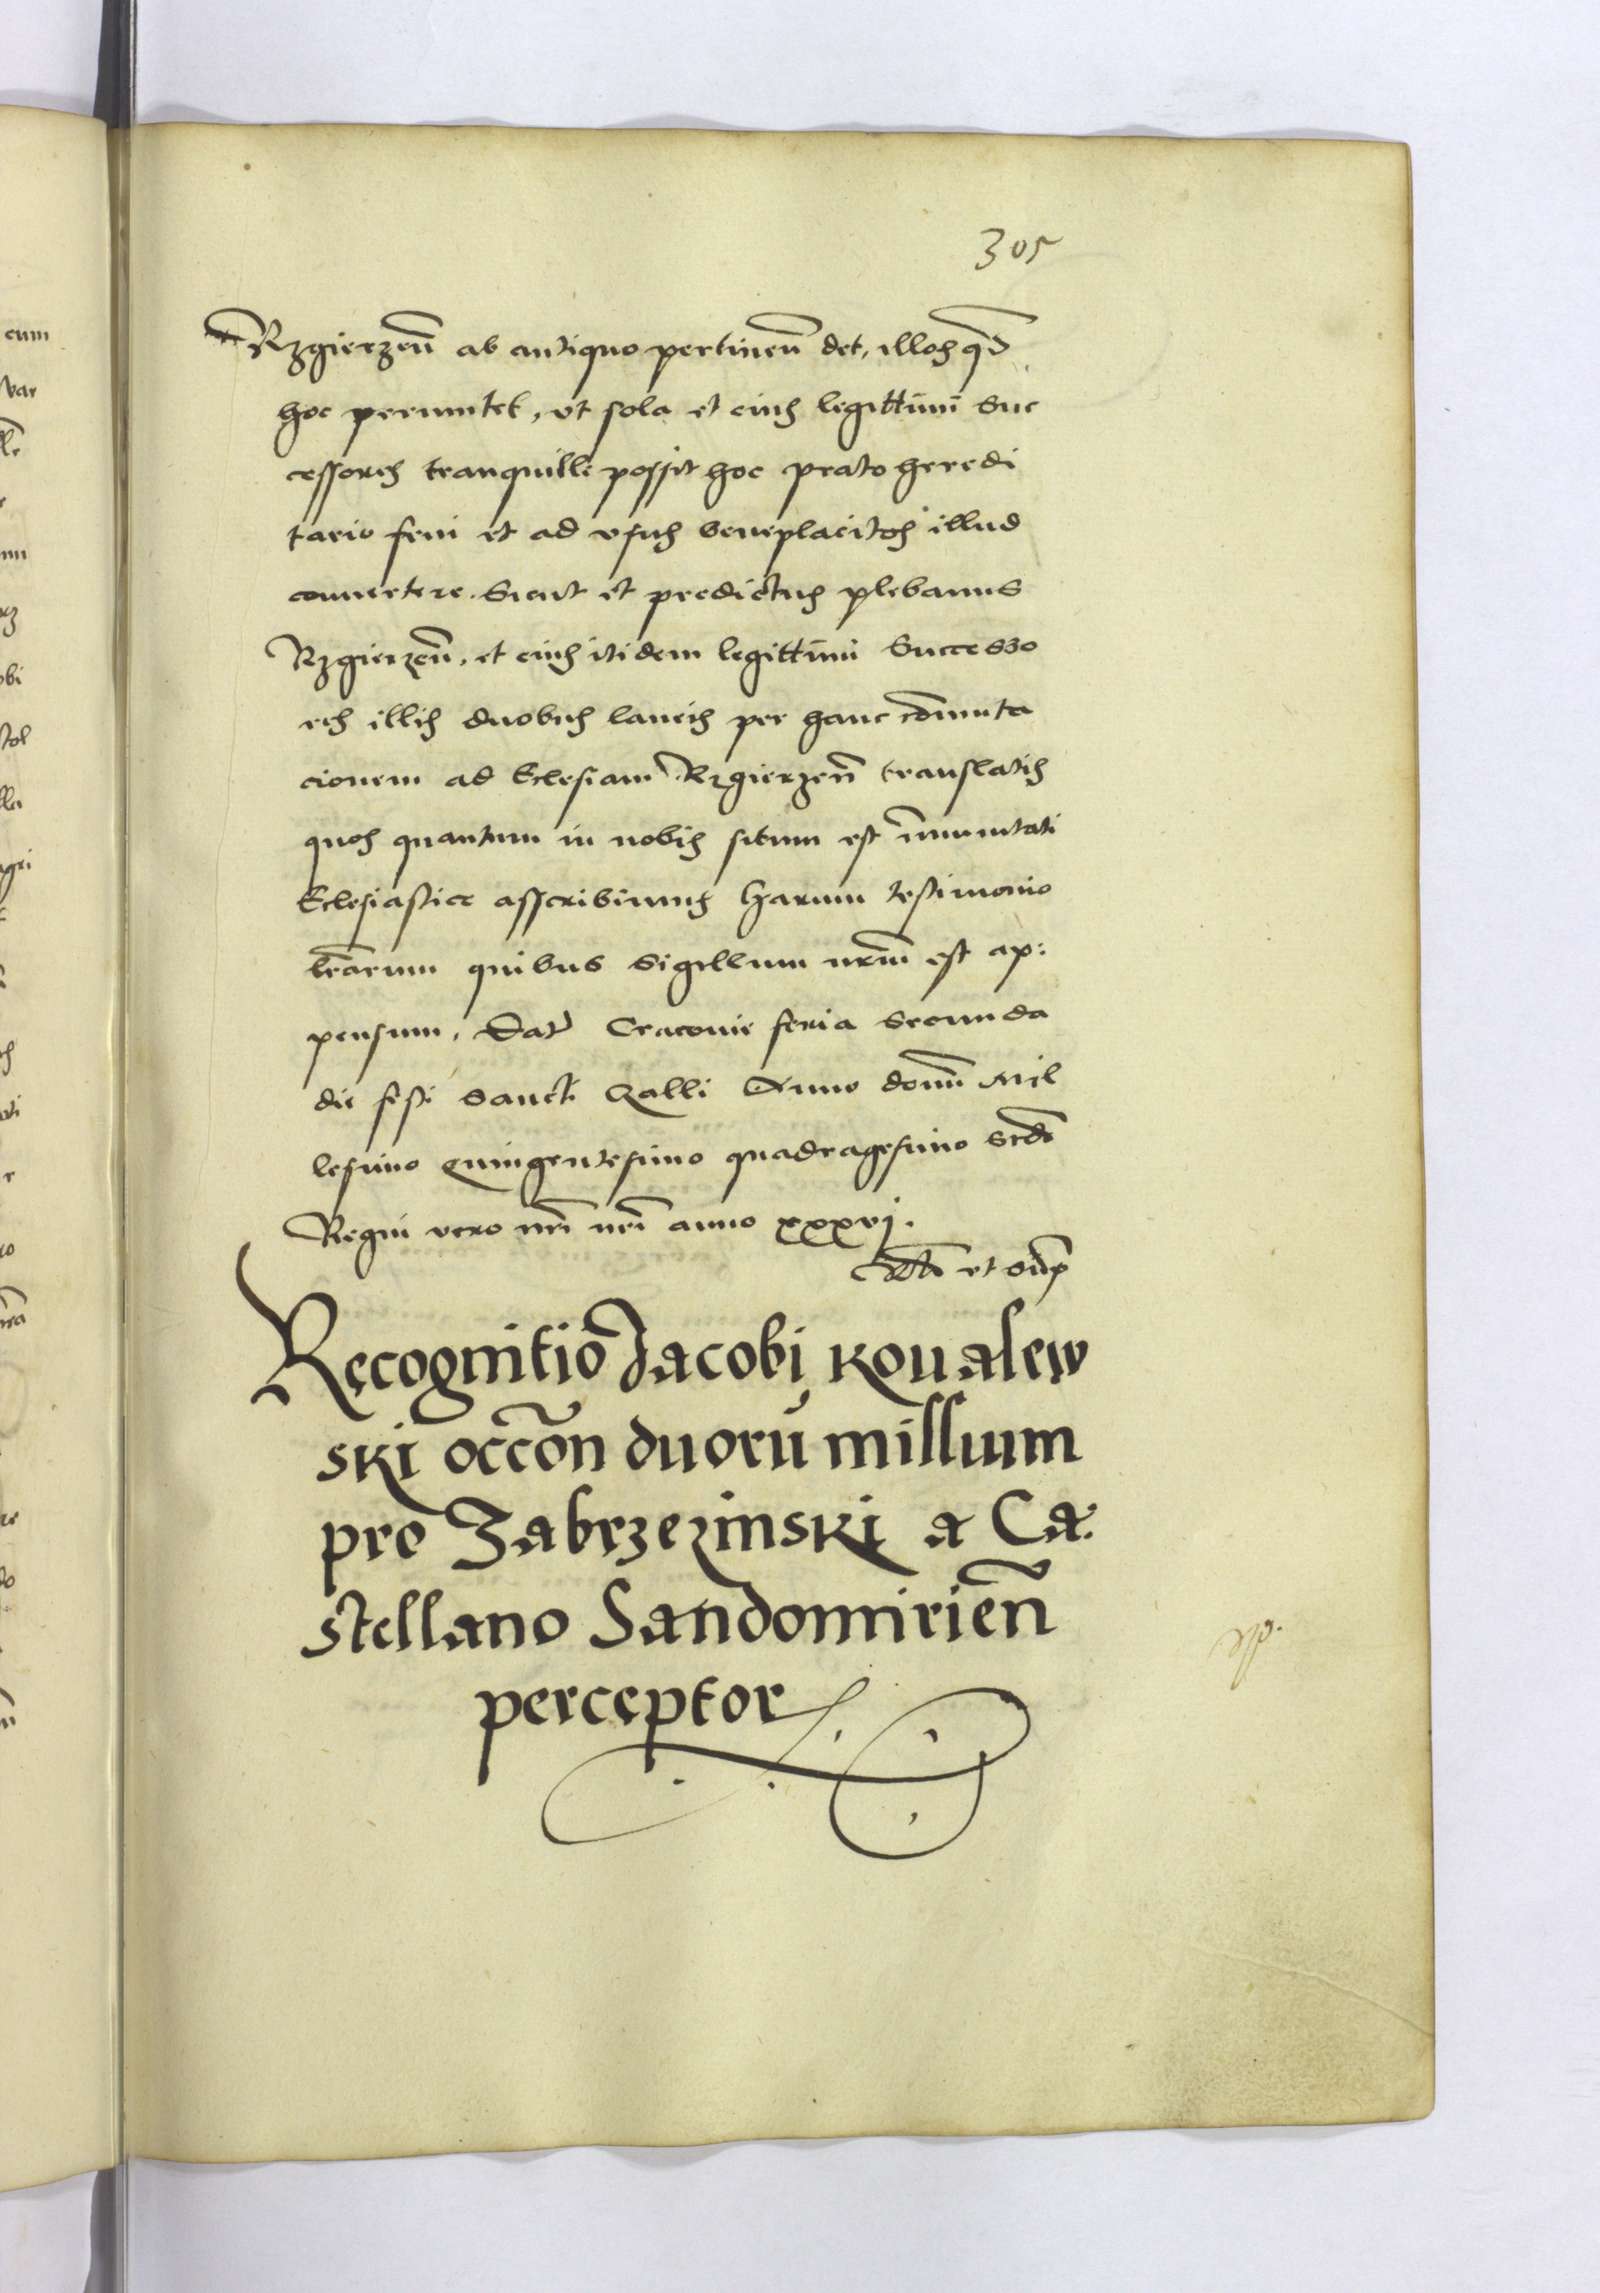 305
Rzgierzen̄ ab antiquo pertinen̄ det, illos q̄d
hoc permutet, vt sola et eius legittimi Suc
cessores tranquille possit hoc prato heredi
tario frui et ad vsus beneplacitos illud
conuertere. Sicut et predictus plebanus
Rzgierzen̄, et eius itidem legittimi Successo
res illis duobus laneis per hanc cōmuta
cionem ad Eclesiam Rzgierzen̄ translatis
quos quantum in nobis situm est īmunitati
Eclesiastice asscribimus Harum testimonio
lr̄arum quibus Sigillum nr̄m est ap:
pensum. Dat Cracovie feria Secunda
die festi Sancti Galli Anno domī Mil
lesimo Quingentesimo quadragesimo Scdō
Regni vero nr̄i nr̄i anno xxxvj.
et
Recognitio Jacobi Koualew
ski occōn duorū millium
pro Zabrzezinski a Ca:
stellano Sandomirien̄
perceptor